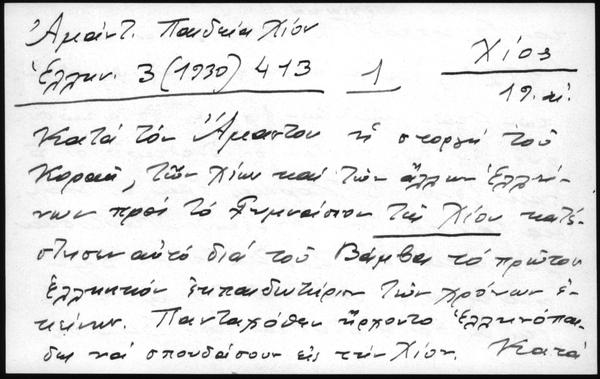 Ἀμάντ. Παιδεία Χίου
Χίος
Ἑλλην. 3 (1930) 413 1
19. αἰ.
Κατά τόν Ἄμαντον ἡ στοργή τοῦ
Κοραῆ, τῶν Χίων καί τῶν ἄλλων Ἑλλή-
νων πρός τό Γυμνάσιον τῆς Χίου κατέ-
στησεν αὐτό διά τοῦ Βάμβα τό πρῶτον
ἑλληνικόν ἐκπαιδευτήριον τῶν χρόνων ἐ-
κείνων. Πανταχόθεν ἤρχοντο Ἑλληνόπαι-
δες νά σπουδάσουν εἰς τήν Χίον. Κατά